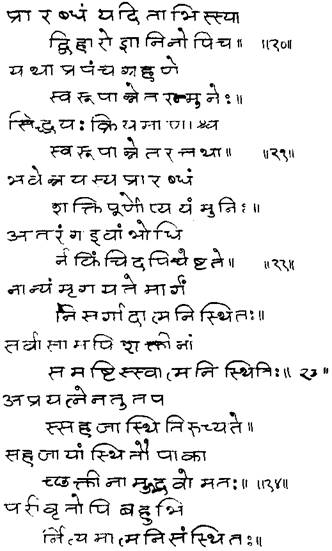 प्रारब्धं यदि ताभिस्स्या
द्विहारो ज्ञानिनोपि च॥ ॥२०॥
यथा प्रपंच ग्रहणे
स्वरूपान्नेतरन्मुनेः॥
सिद्धयः क्रियमाणाश्च
स्वरूपान्नेतरत्तथा॥ ॥२१॥
भवेन्न यस्य प्रारब्धं
शक्तिपूर्णोप्ययं मुनिः॥
अतरंग इवांभोधि
र्न किंचिदपि चेष्टते॥ ॥२२॥
नान्यं मृगयते मार्गं
निसर्गादात्मनि स्थितः॥
सर्वासामपि शक्तीनां
समष्टिस्स्वात्मनि स्थितिः॥ २३॥
अप्रयत्नेन तु तप
स्सहजा स्थितिरुच्यते॥
सहजायां स्थितौ पाका
च्छक्तीनामुद्भवो मतः॥ ॥२४॥
परिवृतोपि बहुभि
र्नित्यमात्मनि संस्थितः॥